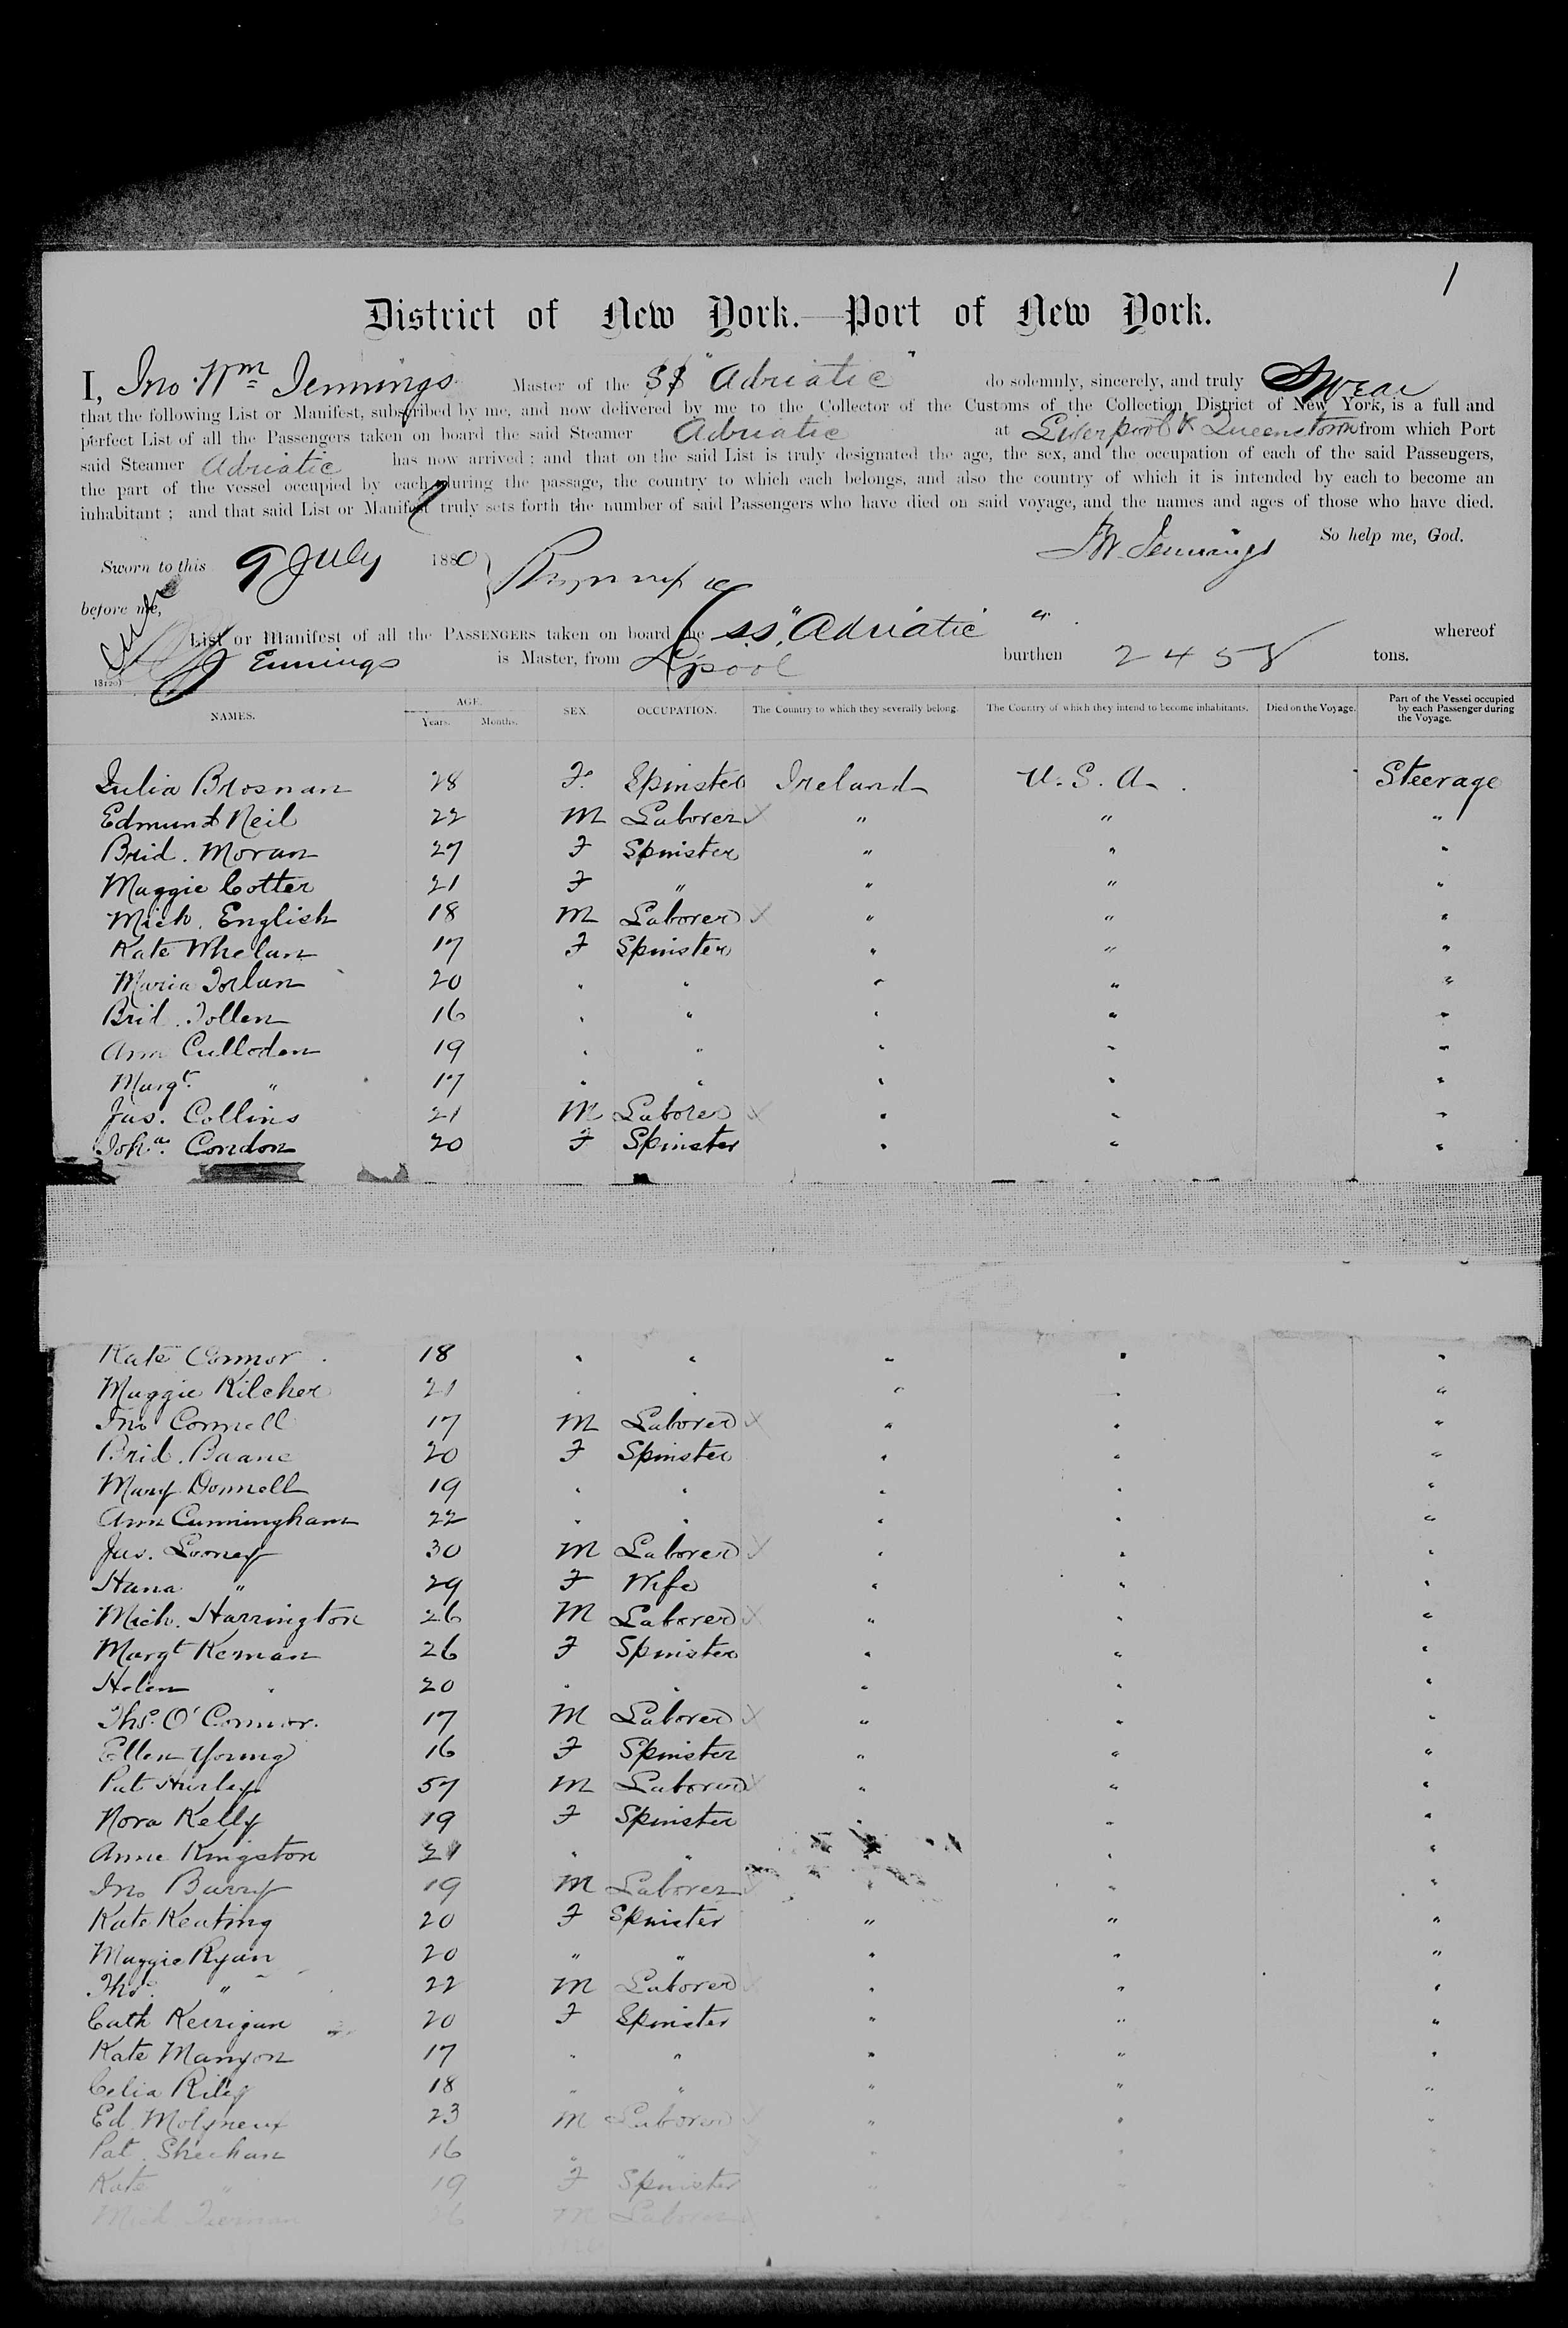 1
District of New York.—Port of New York.
I, Jno Wm Jennings Master of the SS "Adriatic" do solemnly, sincerely, and truly Swear
that the following List or Manifest, subscribed by me, and now delivered by me to the Collector of the Customs of the Collection District of New York, is a full and
perfect List of all the Passengers taken on board the said Steamer Adriatic at Liverpool & Queenstown from which Port
said Steamer Adriatic has now arrived; and that on the said List is truly designated the age, the sex, and the occupation of each of the said Passengers,
the part of the vessel occupied by each during the passage, the country to which each belongs, and also the country of which it is intended by each to become an
inhabitant; and that said List or Manifest truly sets forth the number of said Passengers who have died on said voyage, and the names and ages of those who have died.
So help me, God.
Sworn to this 9 July 1880 JW Jennings
before me,
List or Manifest of all the PASSENGERS taken on board the "SS. Adriatic" whereof
Jennings is Master, from L'pool burthen 2458 tons.
NAMES. AGE. Years. Months. SEX. OCCUPATION. The Country to which they severally belong. The Country of which they intend to become inhabitants. Died on the Voyage. Part of the Vessel occupied by each Passenger during the Voyage.
Julia Brosnan 28 F. Spinster Ireland U.S.A. Steerage
Edmund Neil 22 M Laborer " " "
Brid. Moran 27 F Spinster " " "
Maggie Cotter 21 F " " " "
Mich. English 18 M Laborer " " "
Kate Whelan 17 F Spinster " " "
Maria 20 " " " " "
Brid. 16 " " " " "
Ann Culloden 19 " " " " "
Margt. " 17 " " " " "
Jas. Collins 21 M Laborer " " "
Joha. Condon 20 F Spinster " " "
Kate Connor 18 " " " " "
Maggie Kilcher 21 " " " " "
Jno Connell 17 M Laborer " " "
Brid. Baane 20 F Spinster " " "
Mary Donnell 19 " " " " "
Ann Cunningham 22 " " " " "
Jas. Looney 30 M Laborer " " "
Hana " 29 F Wife " " "
Mich. Harrington 26 M Laborer " " "
Margt Kernan 26 F Spinster " " "
Helen " 20 " " " " "
Ths. O'Connor. 17 M Laborer " " "
Ellen Young 16 F Spinster " " "
Pat Hurley 57 M Laborer " " "
Nora Kelly 19 F Spinster " " "
Anne Kingston 21 " " " "
Jno Barry 19 M Laborer " " "
Kate Keating 20 F Spinster " " "
Maggie Ryan 20 " " " " "
Ths. " 22 M Laborer " " "
Cath Kerrigan 20 F Spinster " " "
Kate Manyon 17 " " " " "
Celia Rily 18 " " " " "
Ed. Molyneux 23 M Laborer " " "
Pat. Sheehan 16 " " " " "
Kate " 19 F Spinster " " "
Mich M Laborer " "